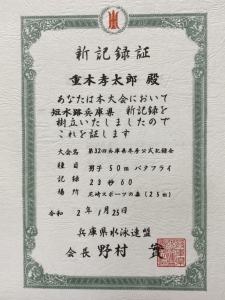 新記録証
重木孝太郎 殿
あなたは本大会において
短水路兵庫県 新記録を
樹立いたしましたので
これを証します
大会名 第32回兵庫県冬季公式記録会
種目 男子 50m バタフライ
記録 23秒60
場所 尼崎スポーツの森 (25m)
令和 2年 1月25日
兵庫県水泳連盟
会長 野村 實